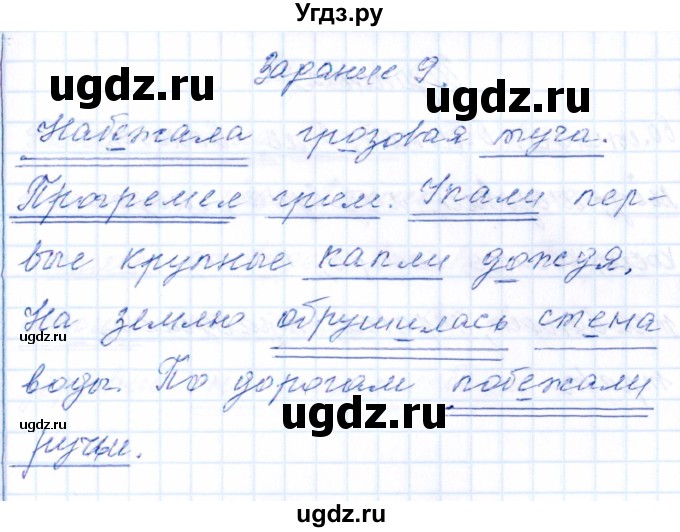 Угдз.ру
ugdz.ru
ugdz.ru
Задание 9.
Набежала грозовая туча.
ugdz.ru
Прогремел гром. Упали пер-
вые крупные капли дождя.
ugdz.ru
ugdz.ru
На землю обрушилась стена
воды. По дорогам побежали
ugdz.ru
ручьи.
ugdz.ru
ugdz.ru